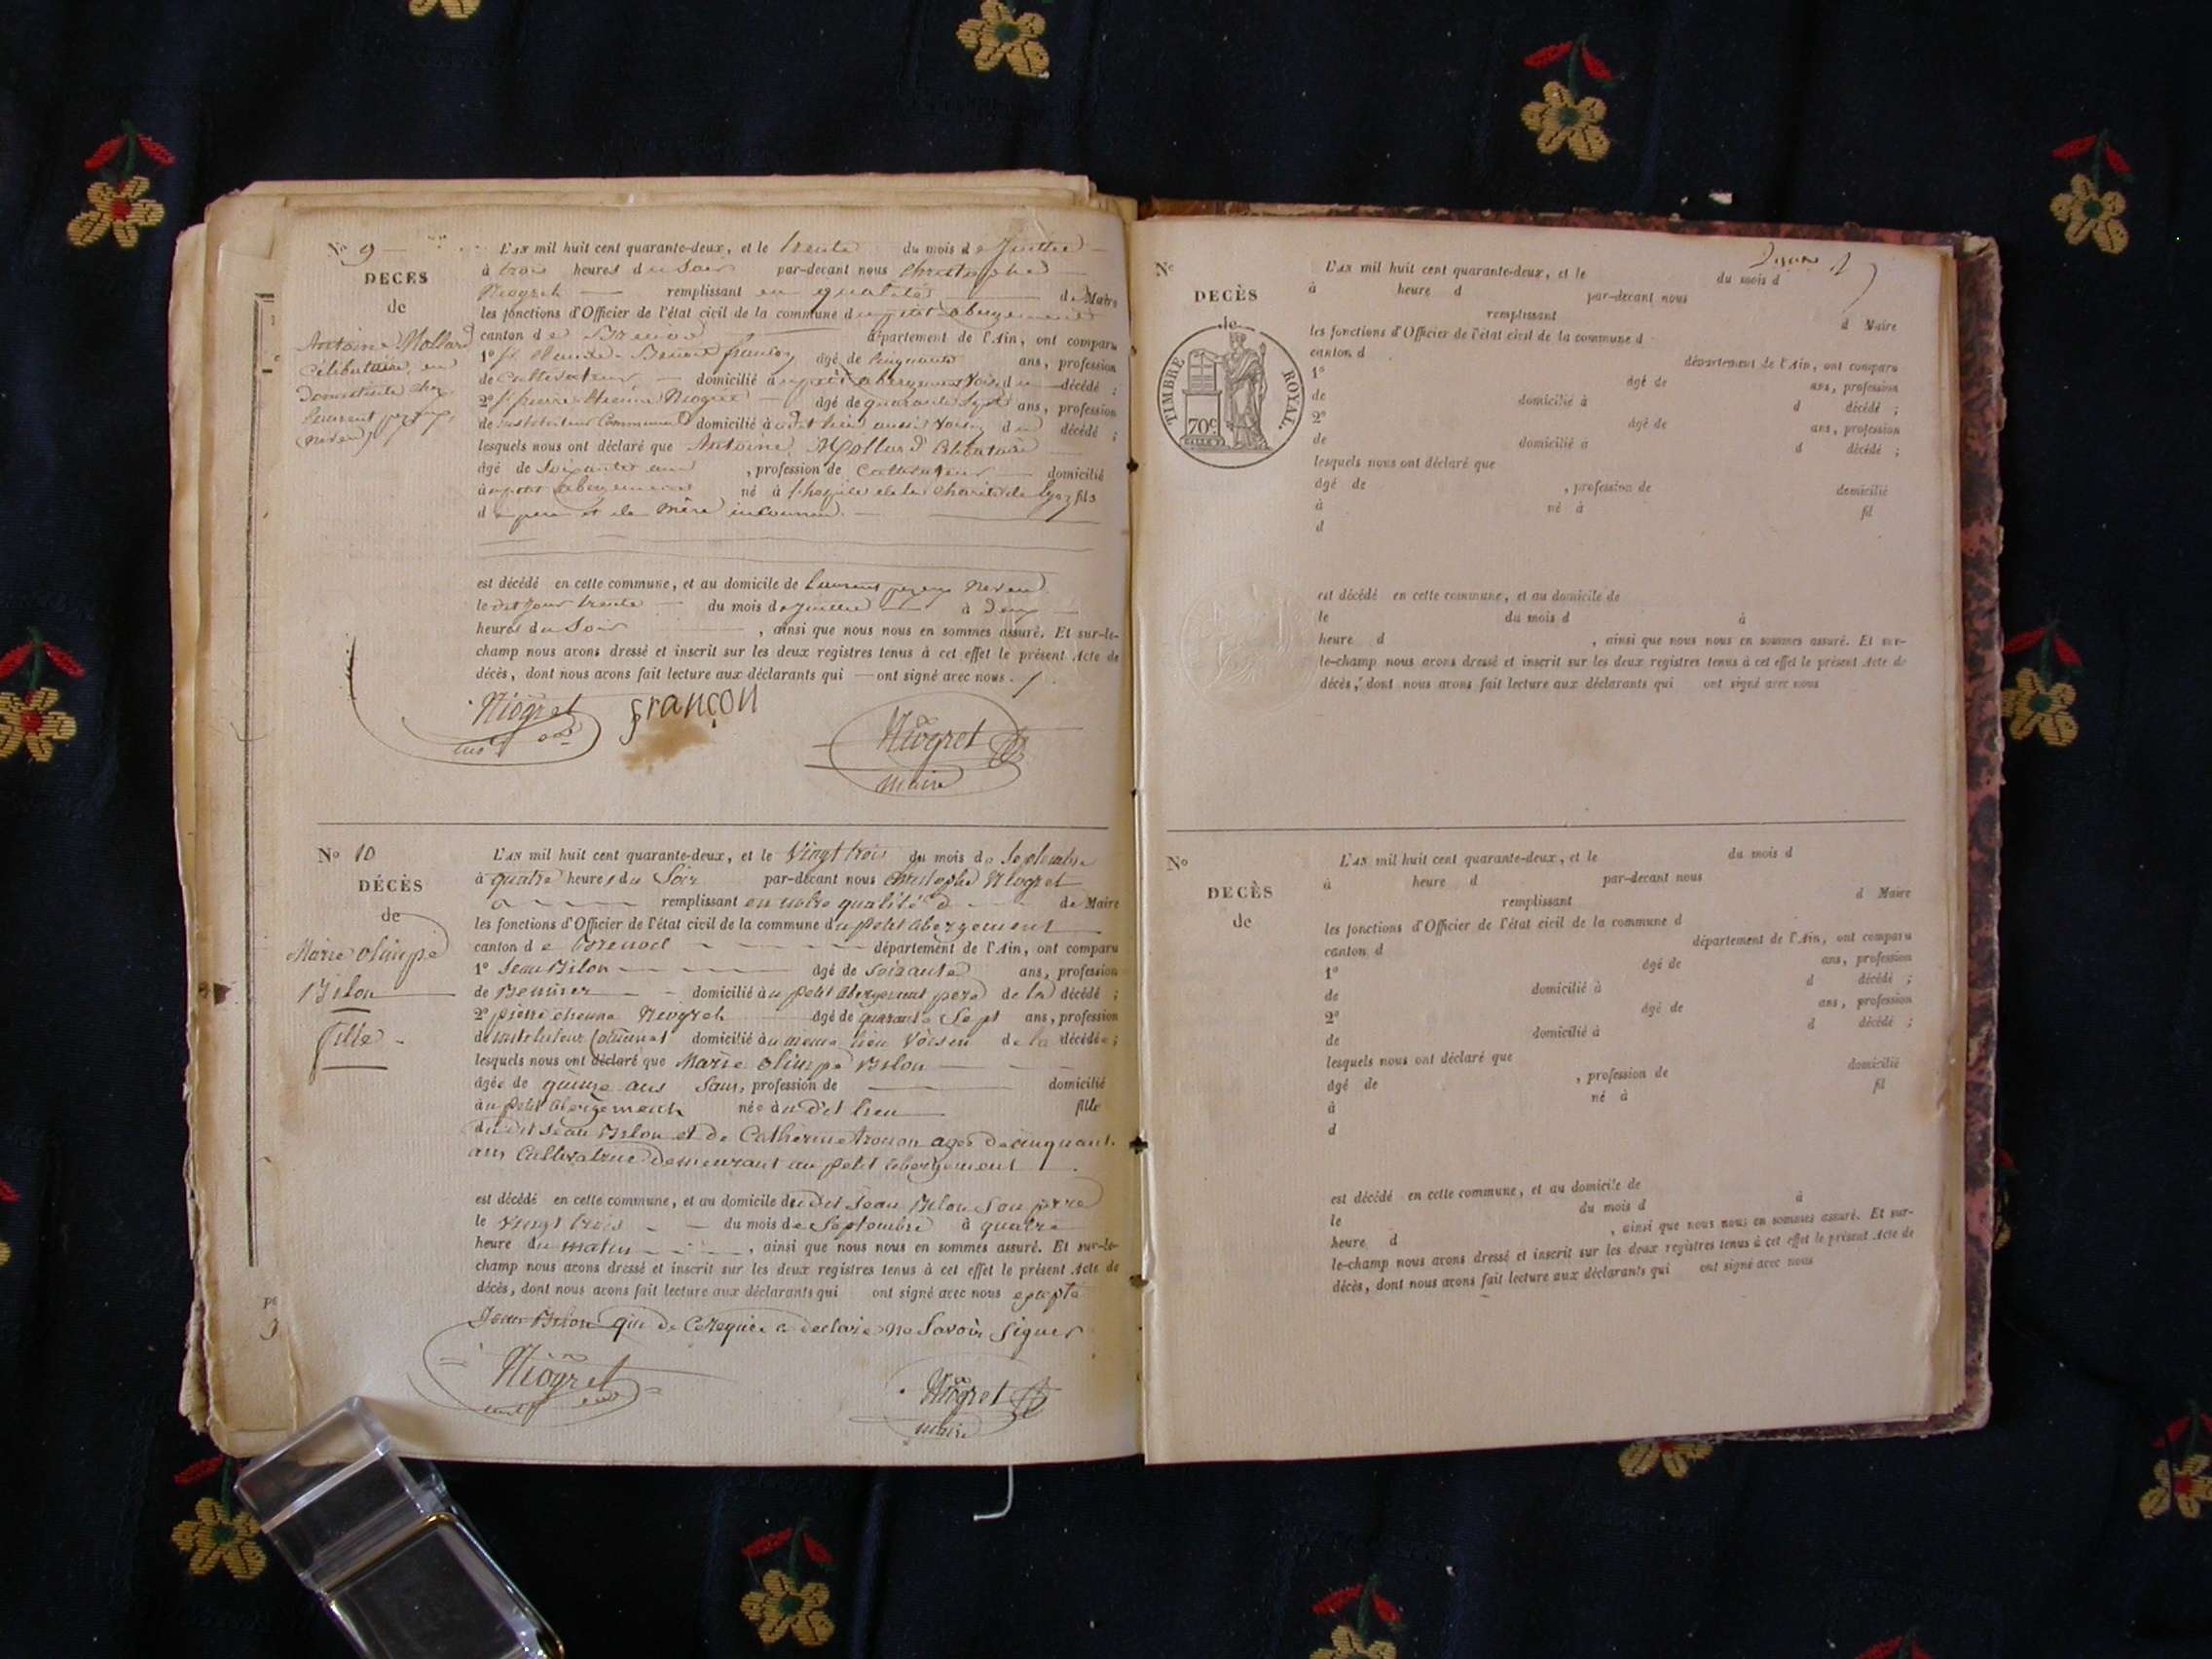 N° 9
DECÈS
de
Antoine Mollard
Célibataire, en
Domesticité chez
Laurent
L'an mil huit cent quarante-deux, et le trente du mois de Juillet
à trois heures du Soir par-devant nous Christophe
Niogret remplissant en qualité de Maire
les fonctions d'Officier de l'état civil de la commune du petit abergement
canton de Brenod département de l'Ain, ont comparu
1° françon âgé de Cinquante ans, profession
de Cultivateur, domicilié au petit abergement Voisin du décédé ;
2° Sr pierre Etienne Niogret âgé de quarante Sept ans, profession
de instituteur Communal domicilié audit lieu aussi Voisin du décédé ;
lesquels nous ont déclaré que Antoine Mollard Célibataire
âgé de Soixante ans , profession de Cultivateur domicilié
au petit abergement né à l'hospice de la Charité de Lyon fils
de père et de Mère inconnu.
est décédé en cette commune, et au domicile de Laurent
le dit Jour trente du mois de Juillet à deux
heures du Soir , ainsi que nous nous en sommes assuré. Et sur-le-
champ nous avons dressé et inscrit sur les deux registres tenus à cet effet le présent Acte de
décès, dont nous avons fait lecture aux déclarants qui ont signé avec nous.
Niogret françon Niogret
maire
N° 10
DÉCÈS
de
Marie olimpe
Bilon
fille
L'an mil huit cent quarante-deux, et le Vingt trois du mois de Septembre
à quatre heures du Soir par-devant nous Christophe Niogret
remplissant en notre qualité de Maire
les fonctions d'Officier de l'état civil de la commune du petit abergement
canton de Brenod département de l'Ain, ont comparu
1° Jean Bilon âgé de Soixante ans, profession
de domicilié au petit abergement pere de la décédé ;
2° pierre etienne Niogret âgé de quarante Sept ans, profession
de instituteur Communal domicilié au meme lieu Voisin de la décédée ;
lesquels nous ont déclaré que Marie olimpe Bilon
âgée de quinze ans Sans, profession de domicilié
au petit abergement née au dit lieu fille
du dit Jean Bilon et de Catherine agée de cinquante
ans Cultivatrice Demeurant au petit abergement
est décédé en cette commune, et au domicile du dit Jean Bilon Son père
le Vingt trois du mois de Septembre à quatre
heure du matin , ainsi que nous nous en sommes assuré. Et sur-le-
champ nous avons dressé et inscrit sur les deux registres tenus à cet effet le présent Acte de
décès, dont nous avons fait lecture aux déclarants qui ont signé avec nous excepté
Jean Bilon qui de Ce Requis a declaré ne Savoir Signer
Niogret Niogret
maire
N°
DECÈS
de
TIMBRE ROYAL.
70c
L'an mil huit cent quarante-deux, et le du mois d
à heure d par-devant nous
remplissant d Maire
les fonctions d'Officier de l'état civil de la commune d
canton d département de l'Ain, ont comparu
1° âgé de ans, profession
de domicilié à d décédé ;
2° âgé de ans, profession
de domicilié à d décédé ;
lesquels nous ont déclaré que
âgé de , profession de domicilié
à né à fil
d
est décédé en cette commune, et au domicile de
le du mois d à
heure d , ainsi que nous nous en sommes assuré. Et sur-
le-champ nous avons dressé et inscrit sur les deux registres tenus à cet effet le présent Acte de
décès, dont nous avons fait lecture aux déclarants qui ont signé avec nous
N°
DECÈS
de
L'an mil huit cent quarante-deux, et le du mois d
à heure d par-devant nous
remplissant d Maire
les fonctions d'Officier de l'état civil de la commune d
canton d département de l'Ain, ont comparu
1° âgé de ans, profession
de domicilié à d décédé ;
2° âgé de ans, profession
de domicilié à d décédé ;
lesquels nous ont déclaré que
âgé de , profession de domicilié
à né à fil
d
est décédé en cette commune, et au domicile de
le du mois d à
heure d , ainsi que nous nous en sommes assuré. Et sur-
le-champ nous avons dressé et inscrit sur les deux registres tenus à cet effet le présent Acte de
décès, dont nous avons fait lecture aux déclarants qui ont signé avec nous